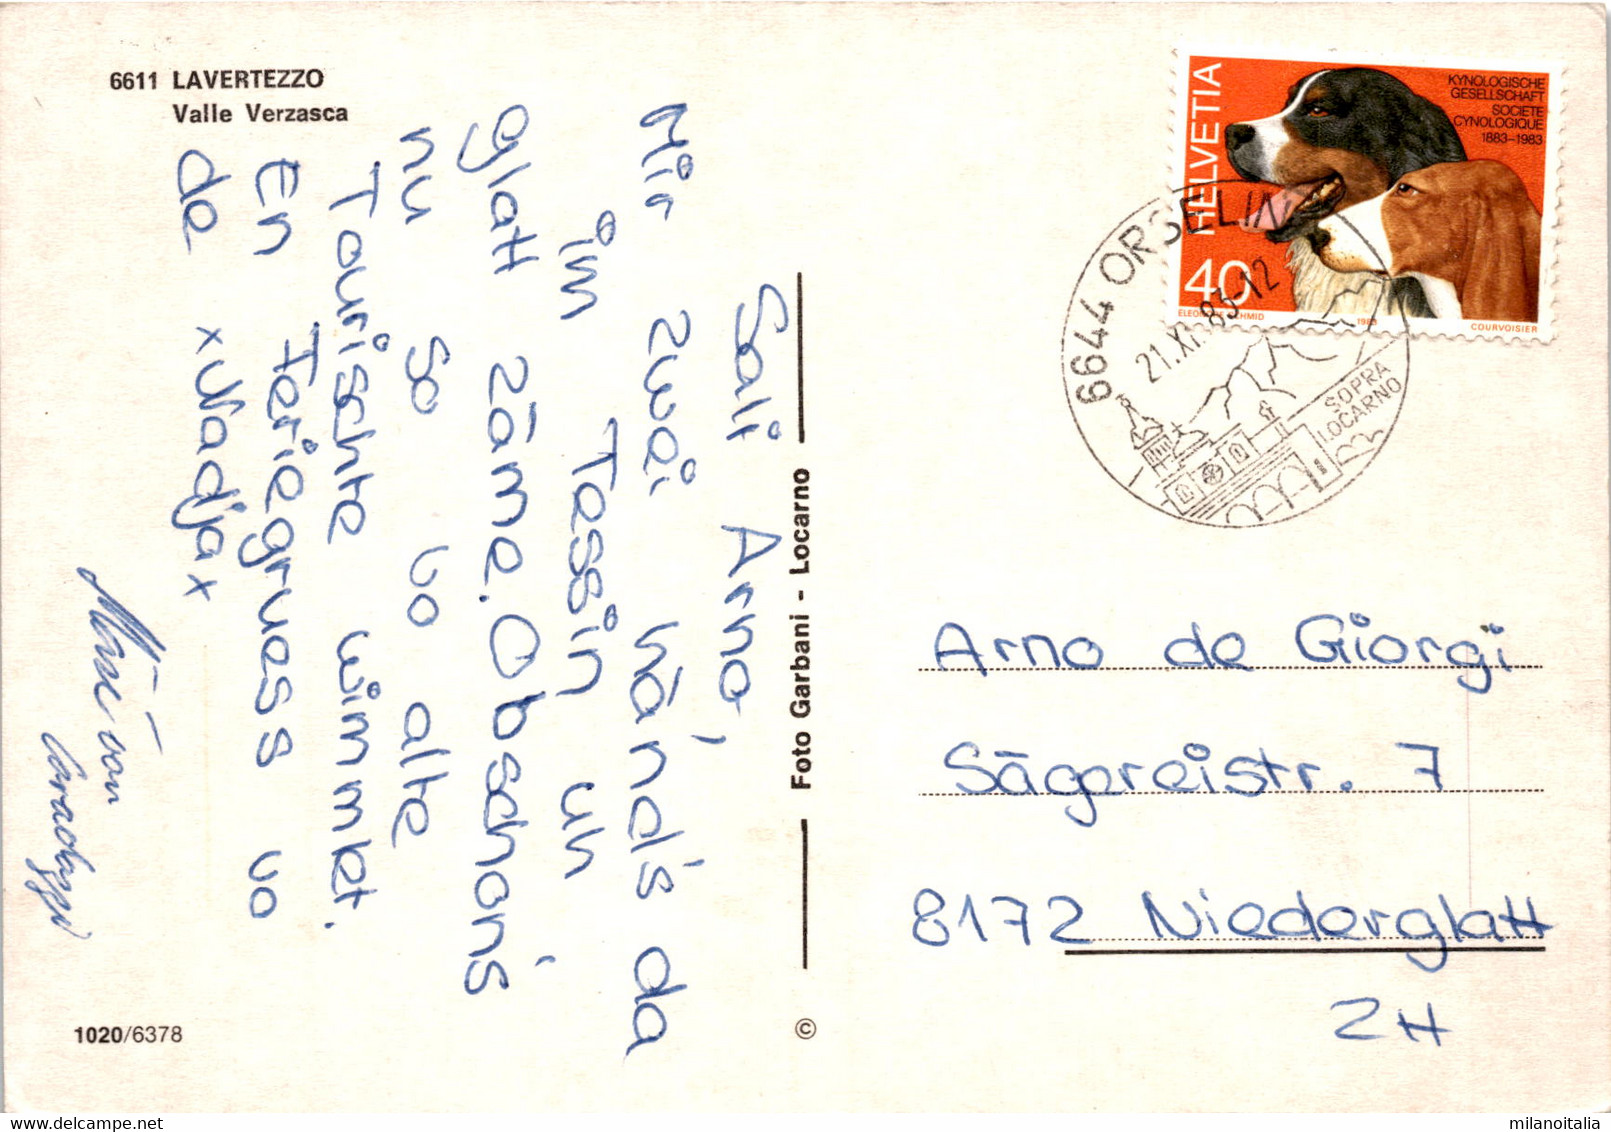 6611 LAVERTEZZO
Valle Verzasca
Sali Arno,
Mir zwei händ's da
im Tessin un
glatt zäme. Obschon's
nu so vo alte
Tourischte wimmlet.
En Feriegruess vo
de xNadjax
1020/6378
Foto Garbani - Locarno
©
HELVETIA
40
KYNOLOGISCHE
GESELLSCHAFT
SOCIETE
CYNOLOGIQUE
1883-1983
1983
COURVOISIER
6644 ORSELINA
21.XI.83-12
SOPRA
LOCARNO
Arno de Giorgi
Sägereistr. 7
8172 Niederglatt
ZH
milanoitalia